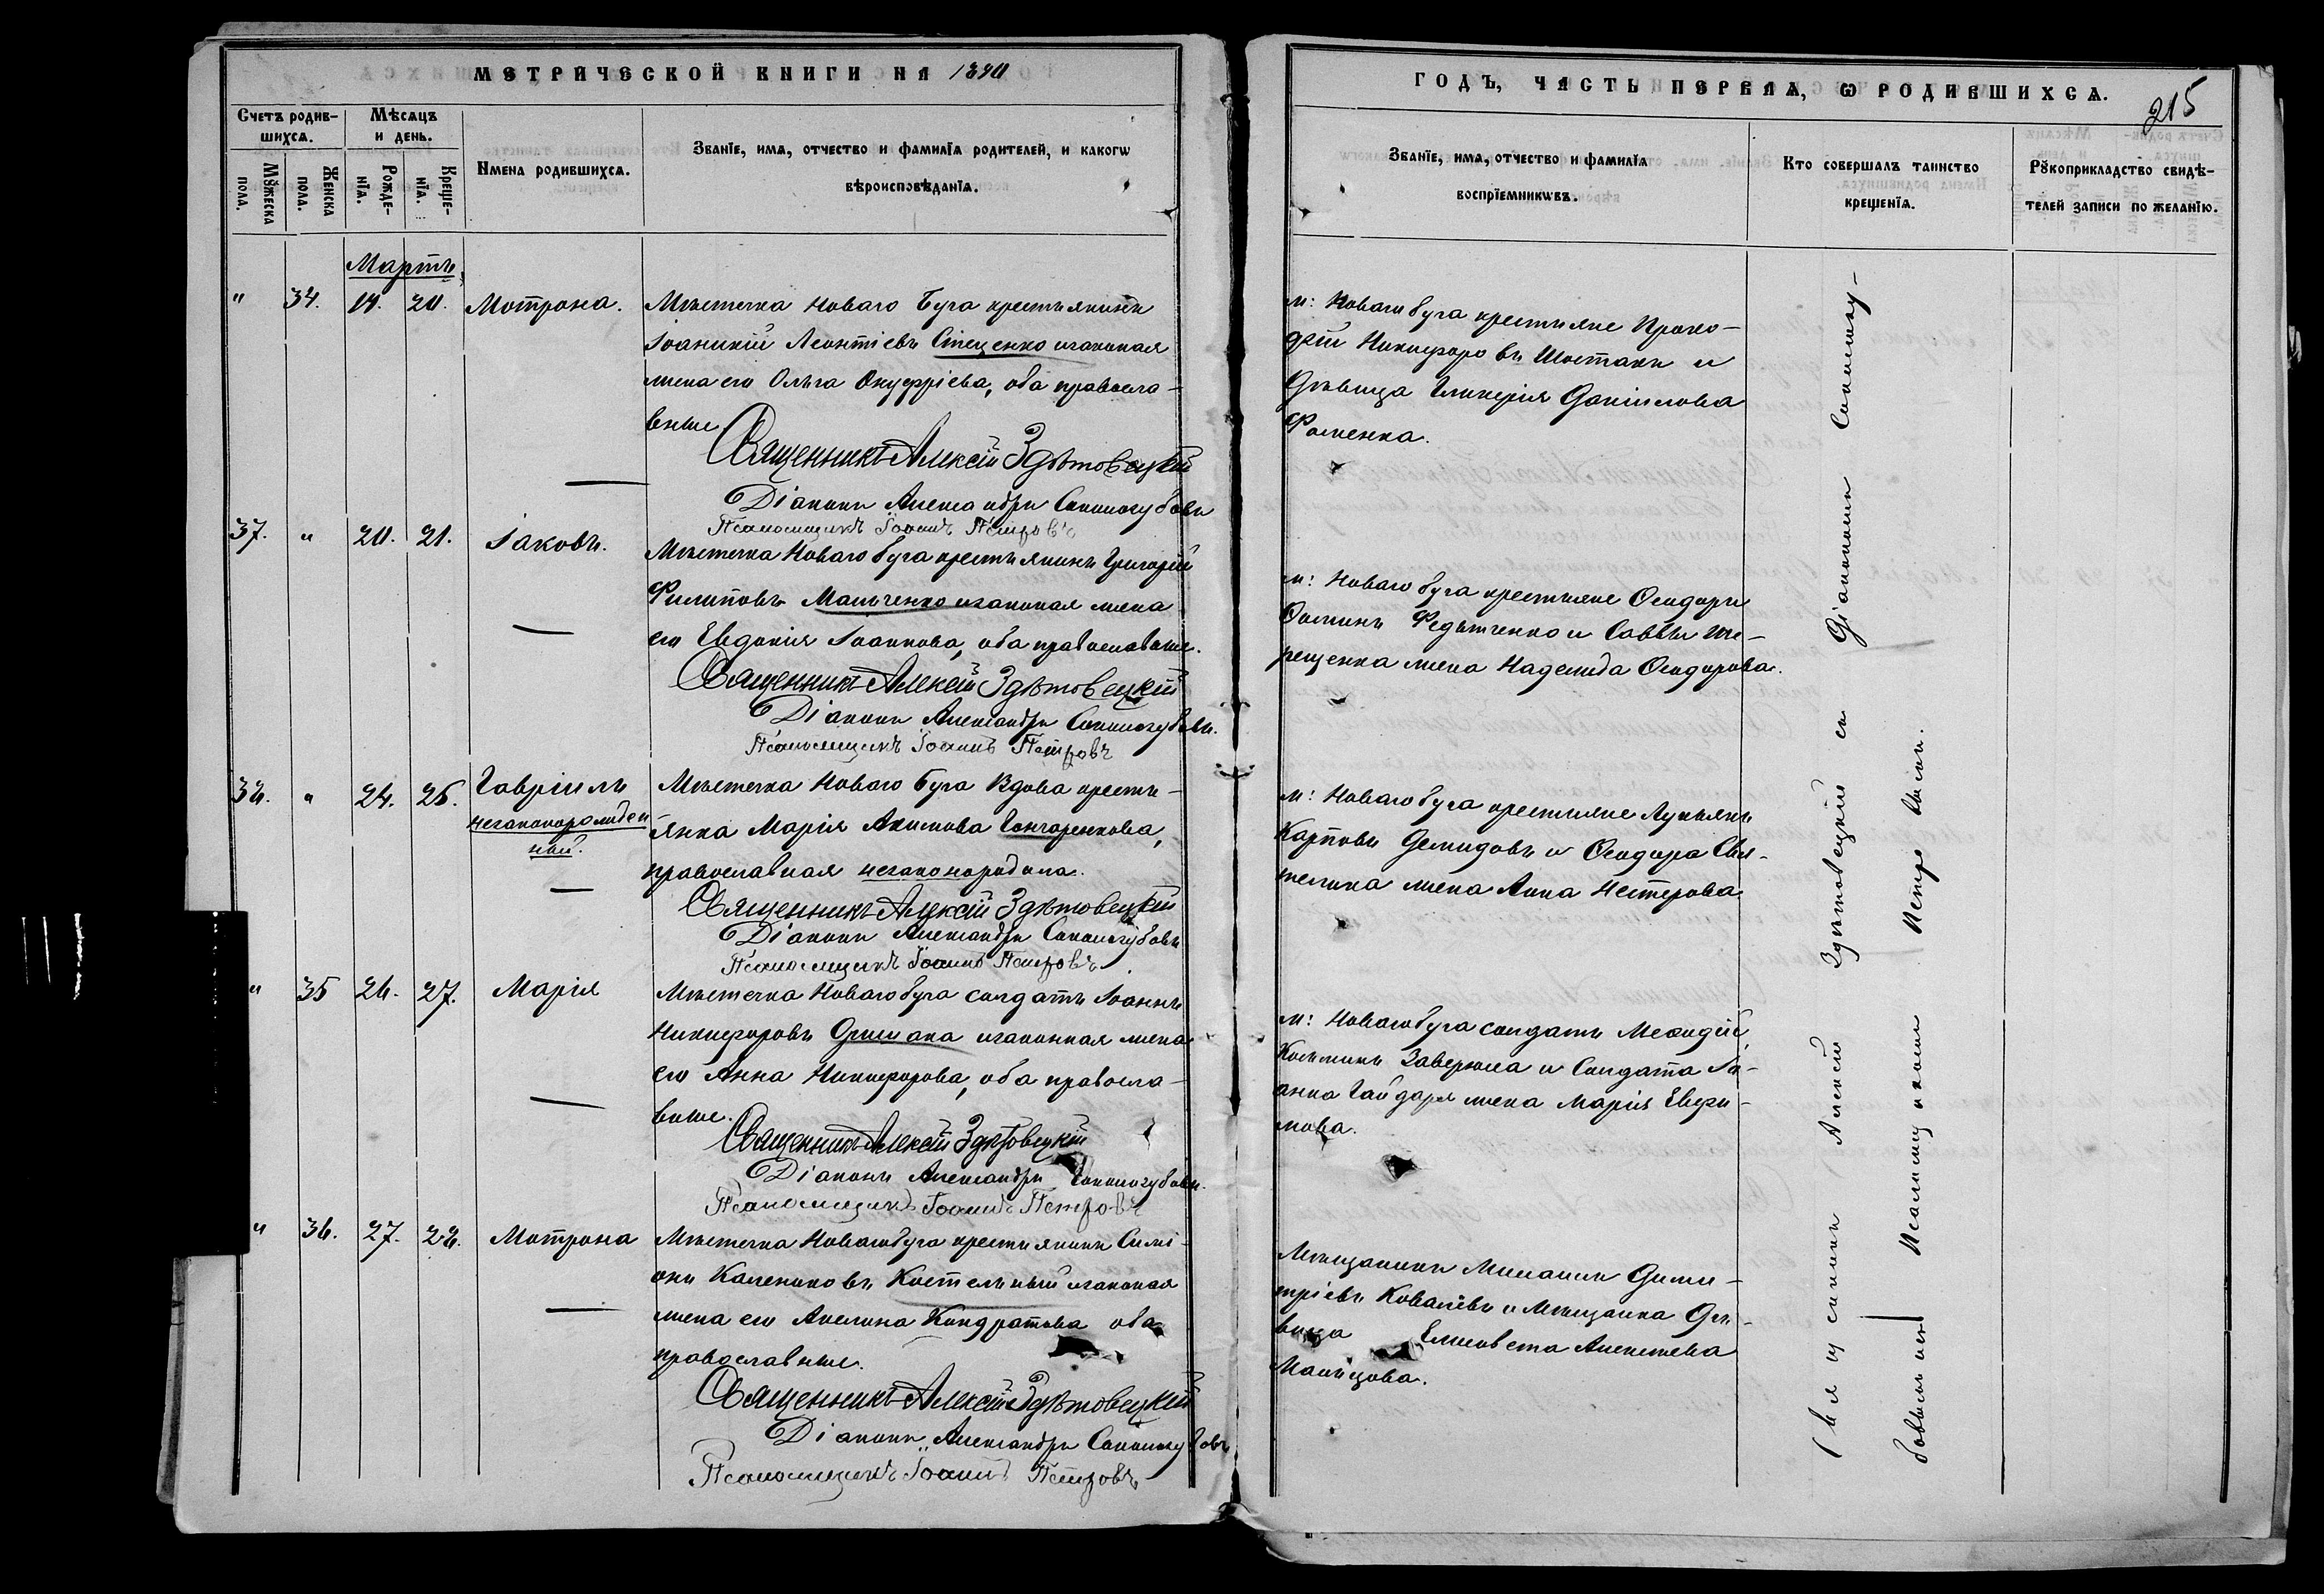 МЕТРИЧЕСКОЙ КНИГИ НА 1890
ГОДЪ, ЧАСТЬ ПЕРВАЯ, Ѡ РОДИВШИХСЯ.
215
Счетъ родив-
шихся.
Мѣсяцъ
и день.
Имена родившихся.
Званїе, имя, отчество и фамилїя родителей, и какогѡ
вѣроисповѣданїя.
Мꙋжеска
пола.
Женска
пола.
Рожде-
нїя.
Креще-
нїя.
Званїе, имя, отчество и фамилїя
воспрїемникѡвъ.
Кто совершалъ таинство
крещенїя.
Рꙋкоприкладство свидѣ-
телей записи по желанїю.
Мартъ
" 34. 19. 20. Мотрона.
Мѣстечка Новаго Буга крестьянинъ
Іоаникій Леонтіевъ Стеценко изаконая
жена его Ольга Онуфріева, оба правосла-
вные
Священникъ Алексій Здѣтовецкій
Діаконъ Александръ
Псаломщикъ Іоаннъ Петровъ
м: Новаго буга крестьяне Проко-
фій Никифоровъ Шостакъ и
Дѣвица Гликерія Даніилова
Фоменка.
37. " 20. 21. Іаковъ.
Мѣстечка Новаго буга крестьянинъ Григорій
Филиповъ Мальченко изаконая жена
его Евдокія Іоаннова, оба православные.
Священникъ Алексій Здѣтовецкій
Діаконъ Александръ
Псаломщикъ Іоаннъ Петровъ
м: Новаго буга крестьяне Ѳеодоръ
Ѳоминъ Федьченко и Саввы Те-
рещенка жена Надежда Ѳеодорова.
38. " 24. 25. Гавріилъ
незаконорожден
ный.
Мѣстечка Новаго Буга Вдова кресть-
янка Марія Акимова Гончаренкова,
православная незаконородила.
Священникъ Алексій Здѣтовецкій
Діаконъ Александръ
Псаломщикъ Іоаннъ Петровъ
м: Новаго буга крестьяне Лукьянъ
Карповъ Демидовъ и Ѳеодора
жена Анна Нестерова.
" 35 26. 27. Марія
Мѣстечка Новаго буга солдатъ Іоаннъ
Никифоровъ Оришака изаконная жена
его Анна Никифорова, оба правосла-
вные.
Священникъ Алексій Здѣтовецкій
Діаконъ Александръ
Псаломщикъ Іоаннъ Петровъ
м: Новаго буга солдатъ Меѳодій
Козьминъ Заверюха и Солдата Іо-
анна Гайдаря жена Марія Евфи-
мова.
" 36. 27. 28. Мотрона
Мѣстечка Новаго буга крестьянинъ Симе-
онъ Калениковъ Костельный изаконая
жена его Акелина Кондратова оба
православные.
Священникъ Алексій Здѣтовецкій
Діаконъ Александръ
Псаломщикъ Іоаннъ Петровъ
Мѣщанинъ Михаилъ Дими-
тріевъ Ковалёвъ и Мѣщанка Дѣ-
вица Елисовета Алексѣева
Священникъ Алексій Здѣтовецкій съ Діакономъ